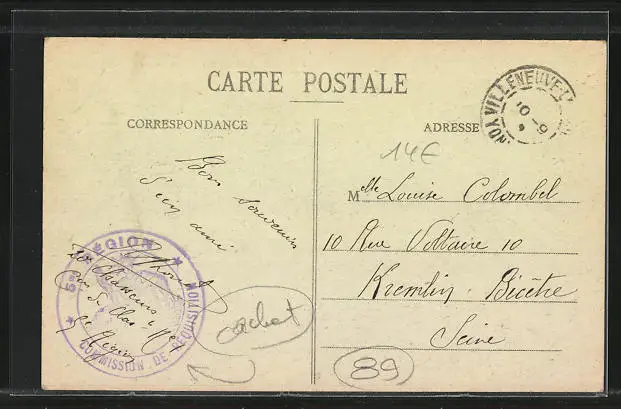 CARTE POSTALE
CORRESPONDANCE
ADRESSE
VILLENEUVE-
YON
10-9
14€
Bon souvenir
ami
Mlle Louise Colombel
10 Rue Voltaire 10
Kremlin-Bicêtre
Seine
5e RÉGION
COMMISSION DE
20e Chasseurs à
cachet
89